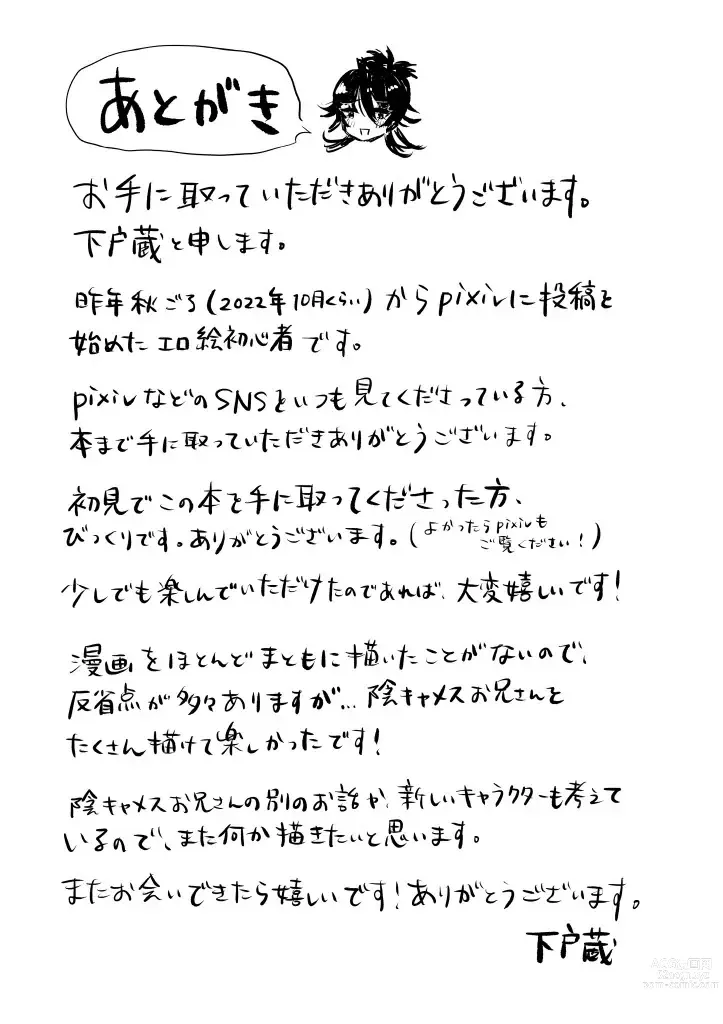 あとがき
お手に取っていただきありがとうございます。
下戸蔵と申します。
昨年秋ごろ(2022年10月くらい)からpixivに投稿を
始めたエロ絵初心者です。
pixivなどのSNSをいつも見てくださっている方、
本まで手に取っていただきありがとうございます。
初見でこの本を手に取ってくださった方、
びっくりです。ありがとうございます。(よかったらpixivも
ご覧ください!)
少しでも楽しんでいただけたのであれば、大変嬉しいです!
漫画をほとんどまともに描いたことがないので、
反省点が多々ありますが...陰キャメスお兄さんを
たくさん描けて楽しかったです!
陰キャメスお兄さんの別のお話や、新しいキャラクターも考えて
いるので、また何か描きたいと思います。
またお会いできたら嬉しいです!ありがとうございます。
下戸蔵